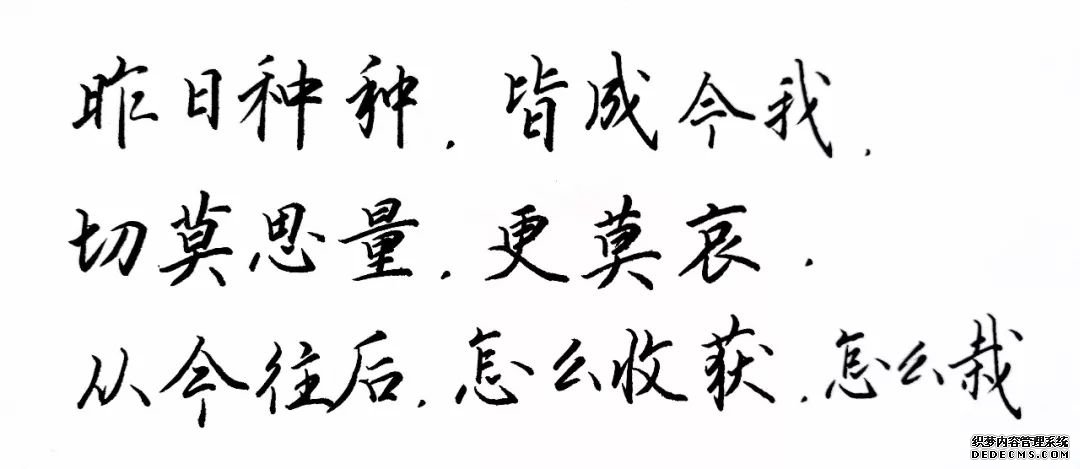 昨日种种，皆成今我，
切莫思量，更莫哀．
从今往后，怎么收获，怎么栽
织梦内容管理系统
DEDECMS.COM